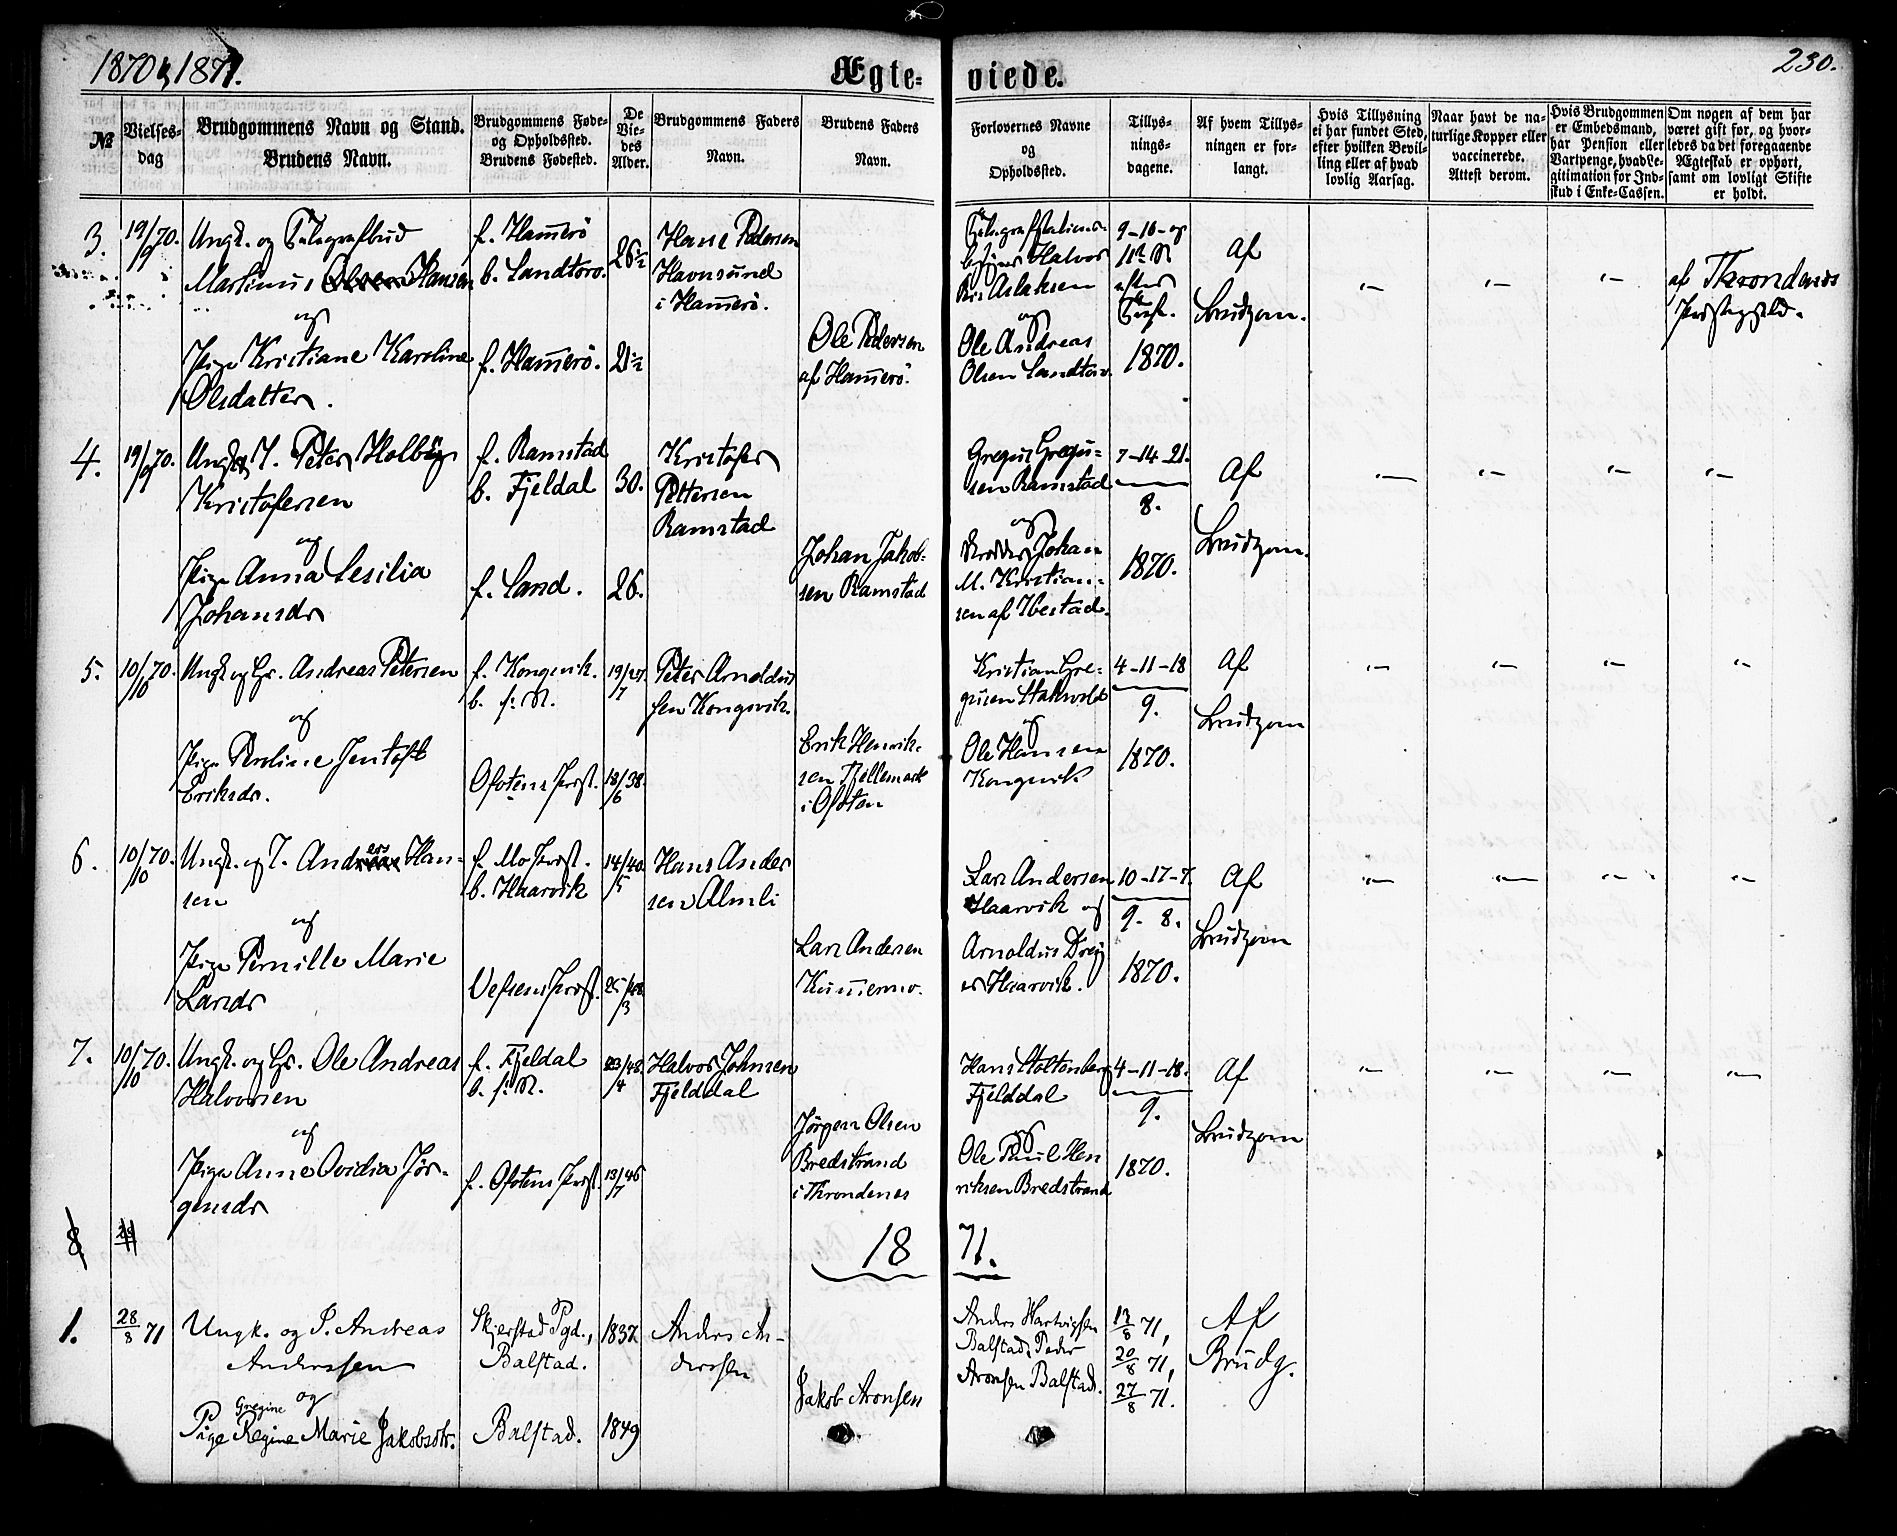 1870, 1871.
Ægte-
viede.
230.
№
Vielses-
dag
Brudgommens Navn og Stand.
Brudens Navn.
Brudgommens Føde-
og Opholdssted.
Brudens Fødested.
De
Vie-
des
Alder.
Brudgommens Faders
Navn.
Brudens Faders
Navn.
Forlovernes Navne
og
Opholdssted.
Tillys-
nings-
dagene.
Af hvem Tillys-
ningen er for-
langt.
Hvis Tillysning
ei har fundet Sted,
efter hvilken Bevil-
ling eller af hvad
lovlig Aarsag.
Naar havt de na-
turlige Kopper eller
vaccinerede.
Attest derom.
Hvis Brudgommen
er Embedsmand,
har Pension eller
Vartpenge, hvad Le-
gitimation for Ind-
skud i Enke-Cassen.
Om nogen af dem har
været gift før, og hvor-
ledes da det foregaaende
Ægteskab er ophørt,
samt om lovligt Skifte
er holdt.
3.
19/9 70.
Ungk. og Telegrafbud
Martinus Olsen Hansen
og
Pige Kristiane Karoline
Olsdatter.
f. Hamerö
b. Sandtorv.
f. Hamerö.
26½
21½
Hans Pedersen
Havnsund
i Hamerö.
Ole Pedersen
af Hamerö.
Halvor
Aslaksen
og
Ole Andreas
Olsen Sandtorv.
9-16-og
efter
1870.
Af
Brudgom.
af Throndenes
Præstegjeld.
4.
19/9 70.
Ungk. I. Peter Holbøg
Kristofersen
og
Pige Anna Sesilia
Johansdr
f. Ramstad
b. Fjeldal
f. Sand.
30.
26.
Kristofer
Pettersen
Ramstad
Johan Jakob-
sen Ramstad
Gregus Gregu-
sen Ramstad
og
Johan
M. Kristian-
sen af Ibestad.
7-14-21.
8.
1870.
Af
Brudgom.
5.
10/10 70.
Ungk og Gr. Andreas Petersen
og
Pige Perline Jentoft
Eriksdr.
f. Kongsvik.
b. f: N.
Ofotens Prest.
19/7 27.
18/6 38.
Peter Arnoldus
sen Kongsvik.
Erik Henrik-
sen Fjellemark
i Ofoten
Kristian Gre-
gusen Stakvold
og
Ole Hansen
Kongsvik
4-11-18
9.
1870.
Af
Brudgom
6.
10/10 70.
Ungk. og I. Anders Han-
sen
og
Pige Pernille Marie
Larsdr
f. Mo Prest.
b. Haarvik
Vefsens Prest.
14/5 40.
25/3 48
Hans Ander
sen Almli
Lars Andersen
Kummermo.
Lars Andersen
Haarvik og
Arnoldus Drey
er Haarvik.
10-17-7.
9. 8.
1870.
Af
Brudgom
7.
10/10 70.
Ungk. og Gr. Ole Andreas
Halvorsen
og
Pige Anne Ovidia Jör-
gensdr
f. Fjeldal
b. f: N.
f. Ofotens Prest.
23/4 48.
13/7 46
Halvor Johnsen
Fjelddal
Jörgen Olsen
Bredstrand
i Throndenes
Hans Stoltenberg
Fjelddal
og
Ole Paul Hen
riksen Bredstrand
4-11-18.
9.
1870.
Af
Brudgom
8.
1871.
1.
28/8 71
Ungk. og I. Andreas
Anderssen
og
Gregine
Pige Regine Marie Jakobsdtr.
Skjerstad Pgd.,
Balstad.
Balstad.
1837
1849
Anders An-
derssen
Jakob Aronsen
Anders Hartvigsen
Balstad, Peder
Aronsen Balstad.
13/8 71,
20/8 71,
27/8 71.
Af
Brudg.